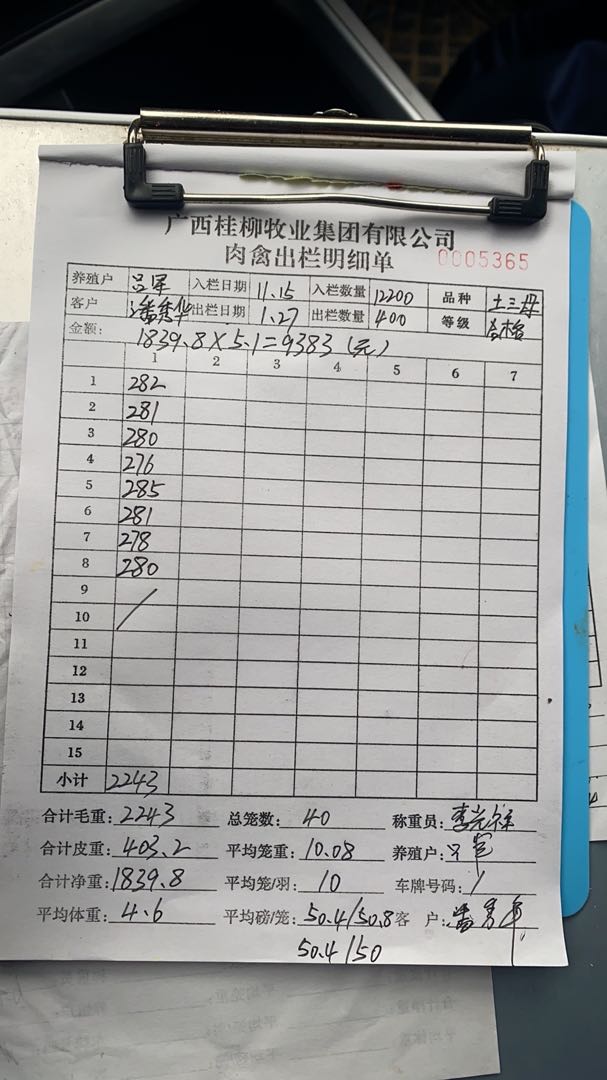 广西桂柳牧业集团有限公司
肉禽出栏明细单 0005365
养殖户 吕军 入栏日期 11.15 入栏数量 12200 品种 土三母
客户 潘秀华 出栏日期 1.27 出栏数量 400 等级 合格
金额: 1839.8×5.1=9383(元)
1 2 3 4 5 6 7
1 282
2 281
3 280
4 276
5 285
6 281
7 278
8 280
9
10
11
12
13
14
15
小计 2243
合计毛重: 2243 总笼数: 40 称重员:
合计皮重: 403.2 平均笼重: 10.08 养殖户:
合计净重: 1839.8 平均笼/羽: 10 车牌号码: /
平均体重: 4.6 平均磅/笼: 50.4/50.8 客 户:
50.4/50